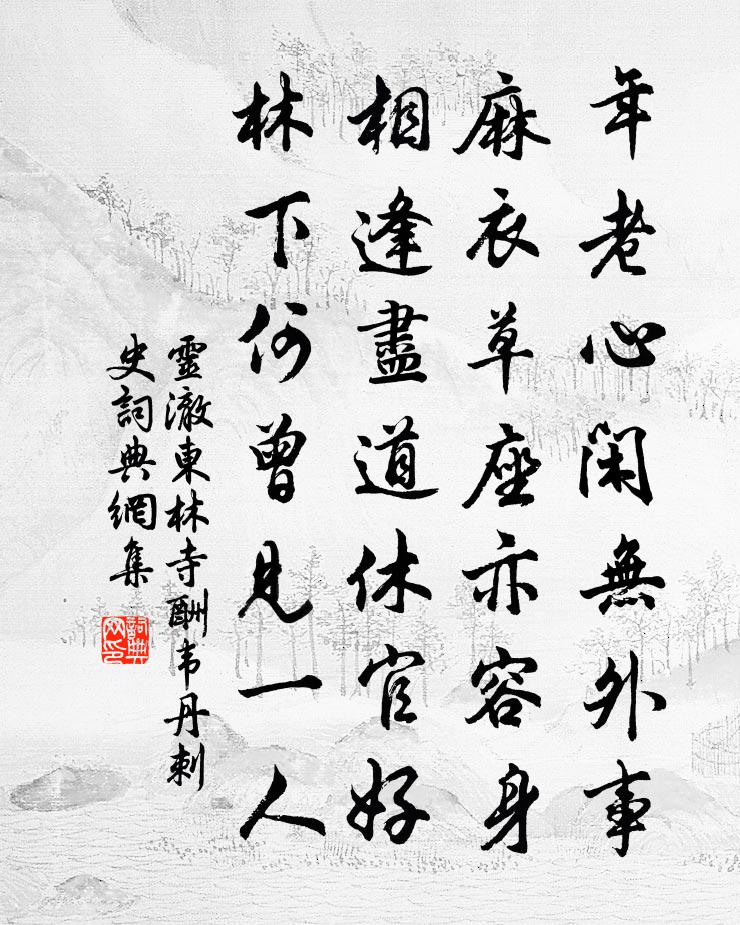 年老心閑無外事
麻衣草座亦容身
相逢盡道休官好
林下何曾見一人
靈澈東林寺酬韦丹刺
史詞典網集
詞典网印